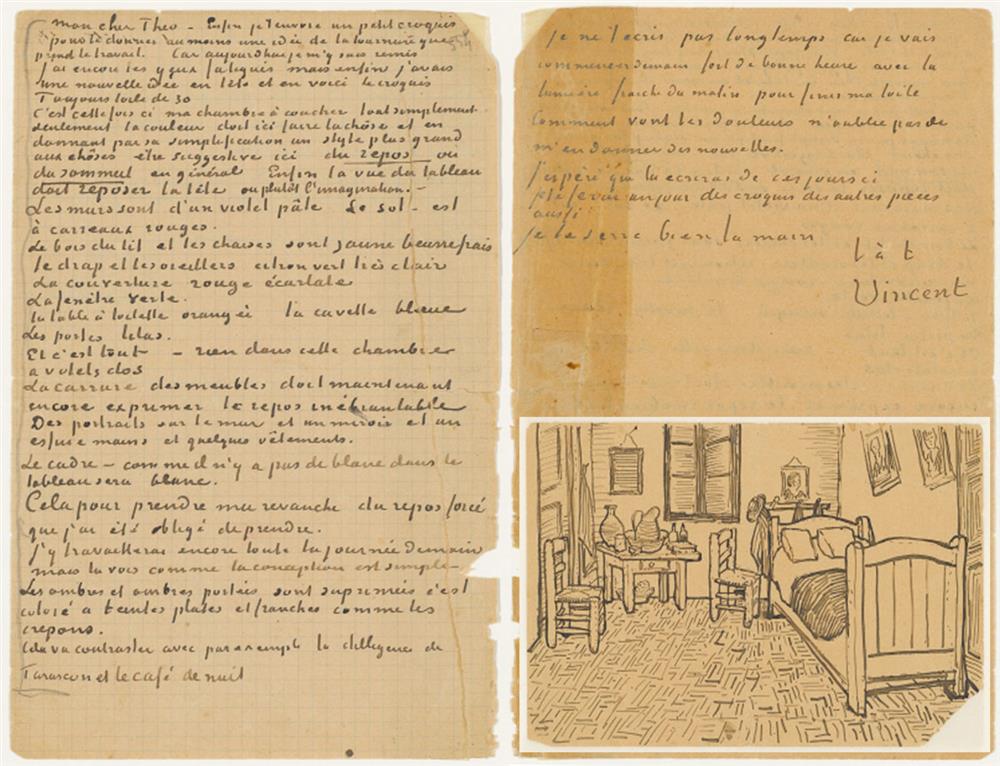 mon cher Theo – Enfin je t'envoie un petit croquis
pour te donner au moins une idée de la tournure que
prend le travail. Car aujourd'hui je m'y suis remis
J'ai encore les yeux fatigués mais enfin j'avais
une nouvelle idée en tête et en voici le croquis
Toujours toile de 30
C'est cette fois ci ma chambre à coucher tout simplement
seulement la couleur doit ici faire la chôse et en
donnant par sa simplification un style plus grand
aux chôses etre suggestive ici du repos ou
du sommeil en général Enfin la vue du tableau
doit reposer la tête ou plutôt l'imagination. –
Les murs sont d'un violet pâle Le sol – est
à carreaux rouges.
Le bois du lit et les chaises sont jaune beurre frais
le drap et les oreillers citron vert très clair
La couverture rouge écarlate
La fenêtre verte.
la table à toilette orangée la cuvette bleue
Les portes lilas.
Et c'est tout – rien dans cette chambre
a volets clos
La carrure des meubles doit maintenant
encore exprimer le repos inébranlable
Des portraits sur le mur et un miroir et un
essuie mains et quelques vêtements.
Le cadre – comme il n'y a pas de blanc dans le
tableau sera blanc.
Cela pour prendre ma revanche du repos forcé
que j'ai été obligé de prendre.
J'y travaillerai encore toute la journée demain
mais tu vois comme la conception est simple –
Les ombres et ombres portées sont suprimées c'est
coloré a teintes plates et franches comme les
crepons.
Cela va contraster avec par exemple la diligence de
Tarascon et le café de nuit
Je ne t'ecris pas longtemps car je vais
commencer demain fort de bonne heure avec la
lumière fraiche du matin pour finir ma toile
Comment vont les douleurs n'oublie pas de
m'en donner des nouvelles.
J'espère que tu ecriras de ces jours ci
je te ferai un jour des croquis des autres pieces
aussi
je te serre bien la main
t à t
Vincent